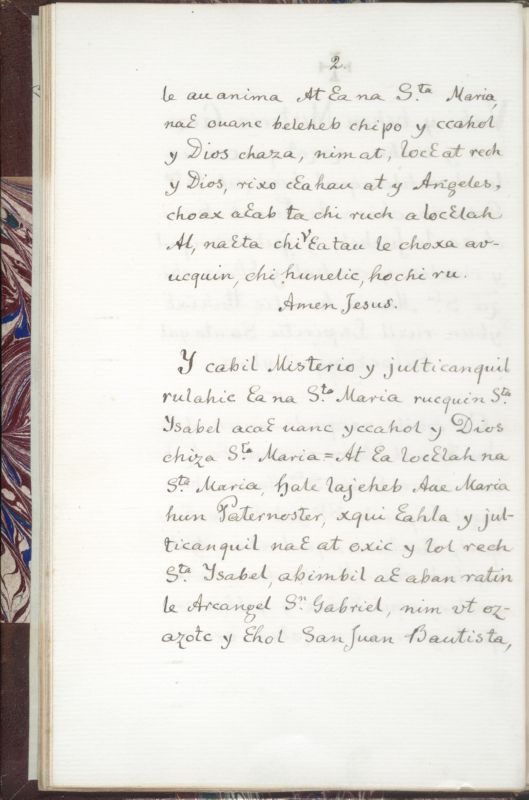 2.
le au anima At Ɛa na S.ta Maria,
naƐ ouanc beleheb chi po y ccahol
y Dios chaza, nim at, locƐ at rech
y Dios, rixo cƐahau at y Angeles,
choax aƐab ta chi ruch a locƐlah
Al, naƐta chi Ɛatau le choxa av-
ucquin, chi hunelic, ho chi ru.
Amen Jesus.
Y cabil Misterio y julticanquil
rulahic Ɛa na S.ta Maria rucquin S.ta
Ysabel acaƐ uanc y ccahol y Dios
chiza S.ta Maria = At Ɛa locƐlah na
S.ta Maria, hale lajeheb Aue Maria
hun Paternoster, xqui Ɛahla y jul-
ticanquil naƐ at oxic y lol rech
S.ta Ysabel, abimbil aƐ aban ratin
le Arcangel S.n Gabriel, nim vt oz-
azotc y Ɛhol San Juan Bautista,